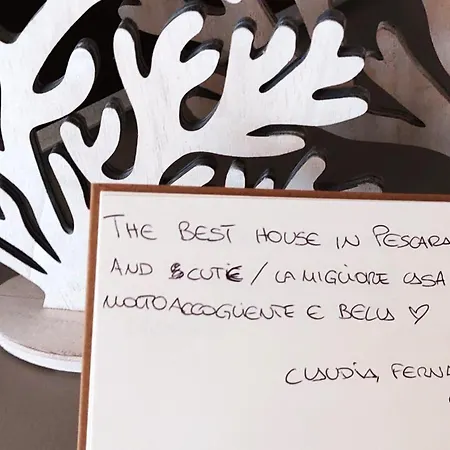 THE BEST HOUSE IN PESCARA
AND CUTE / LA MIGLIORE CASA
MOLTO ACCOGLIENTE E BELLA ♡
CLAUDIA, FERNA